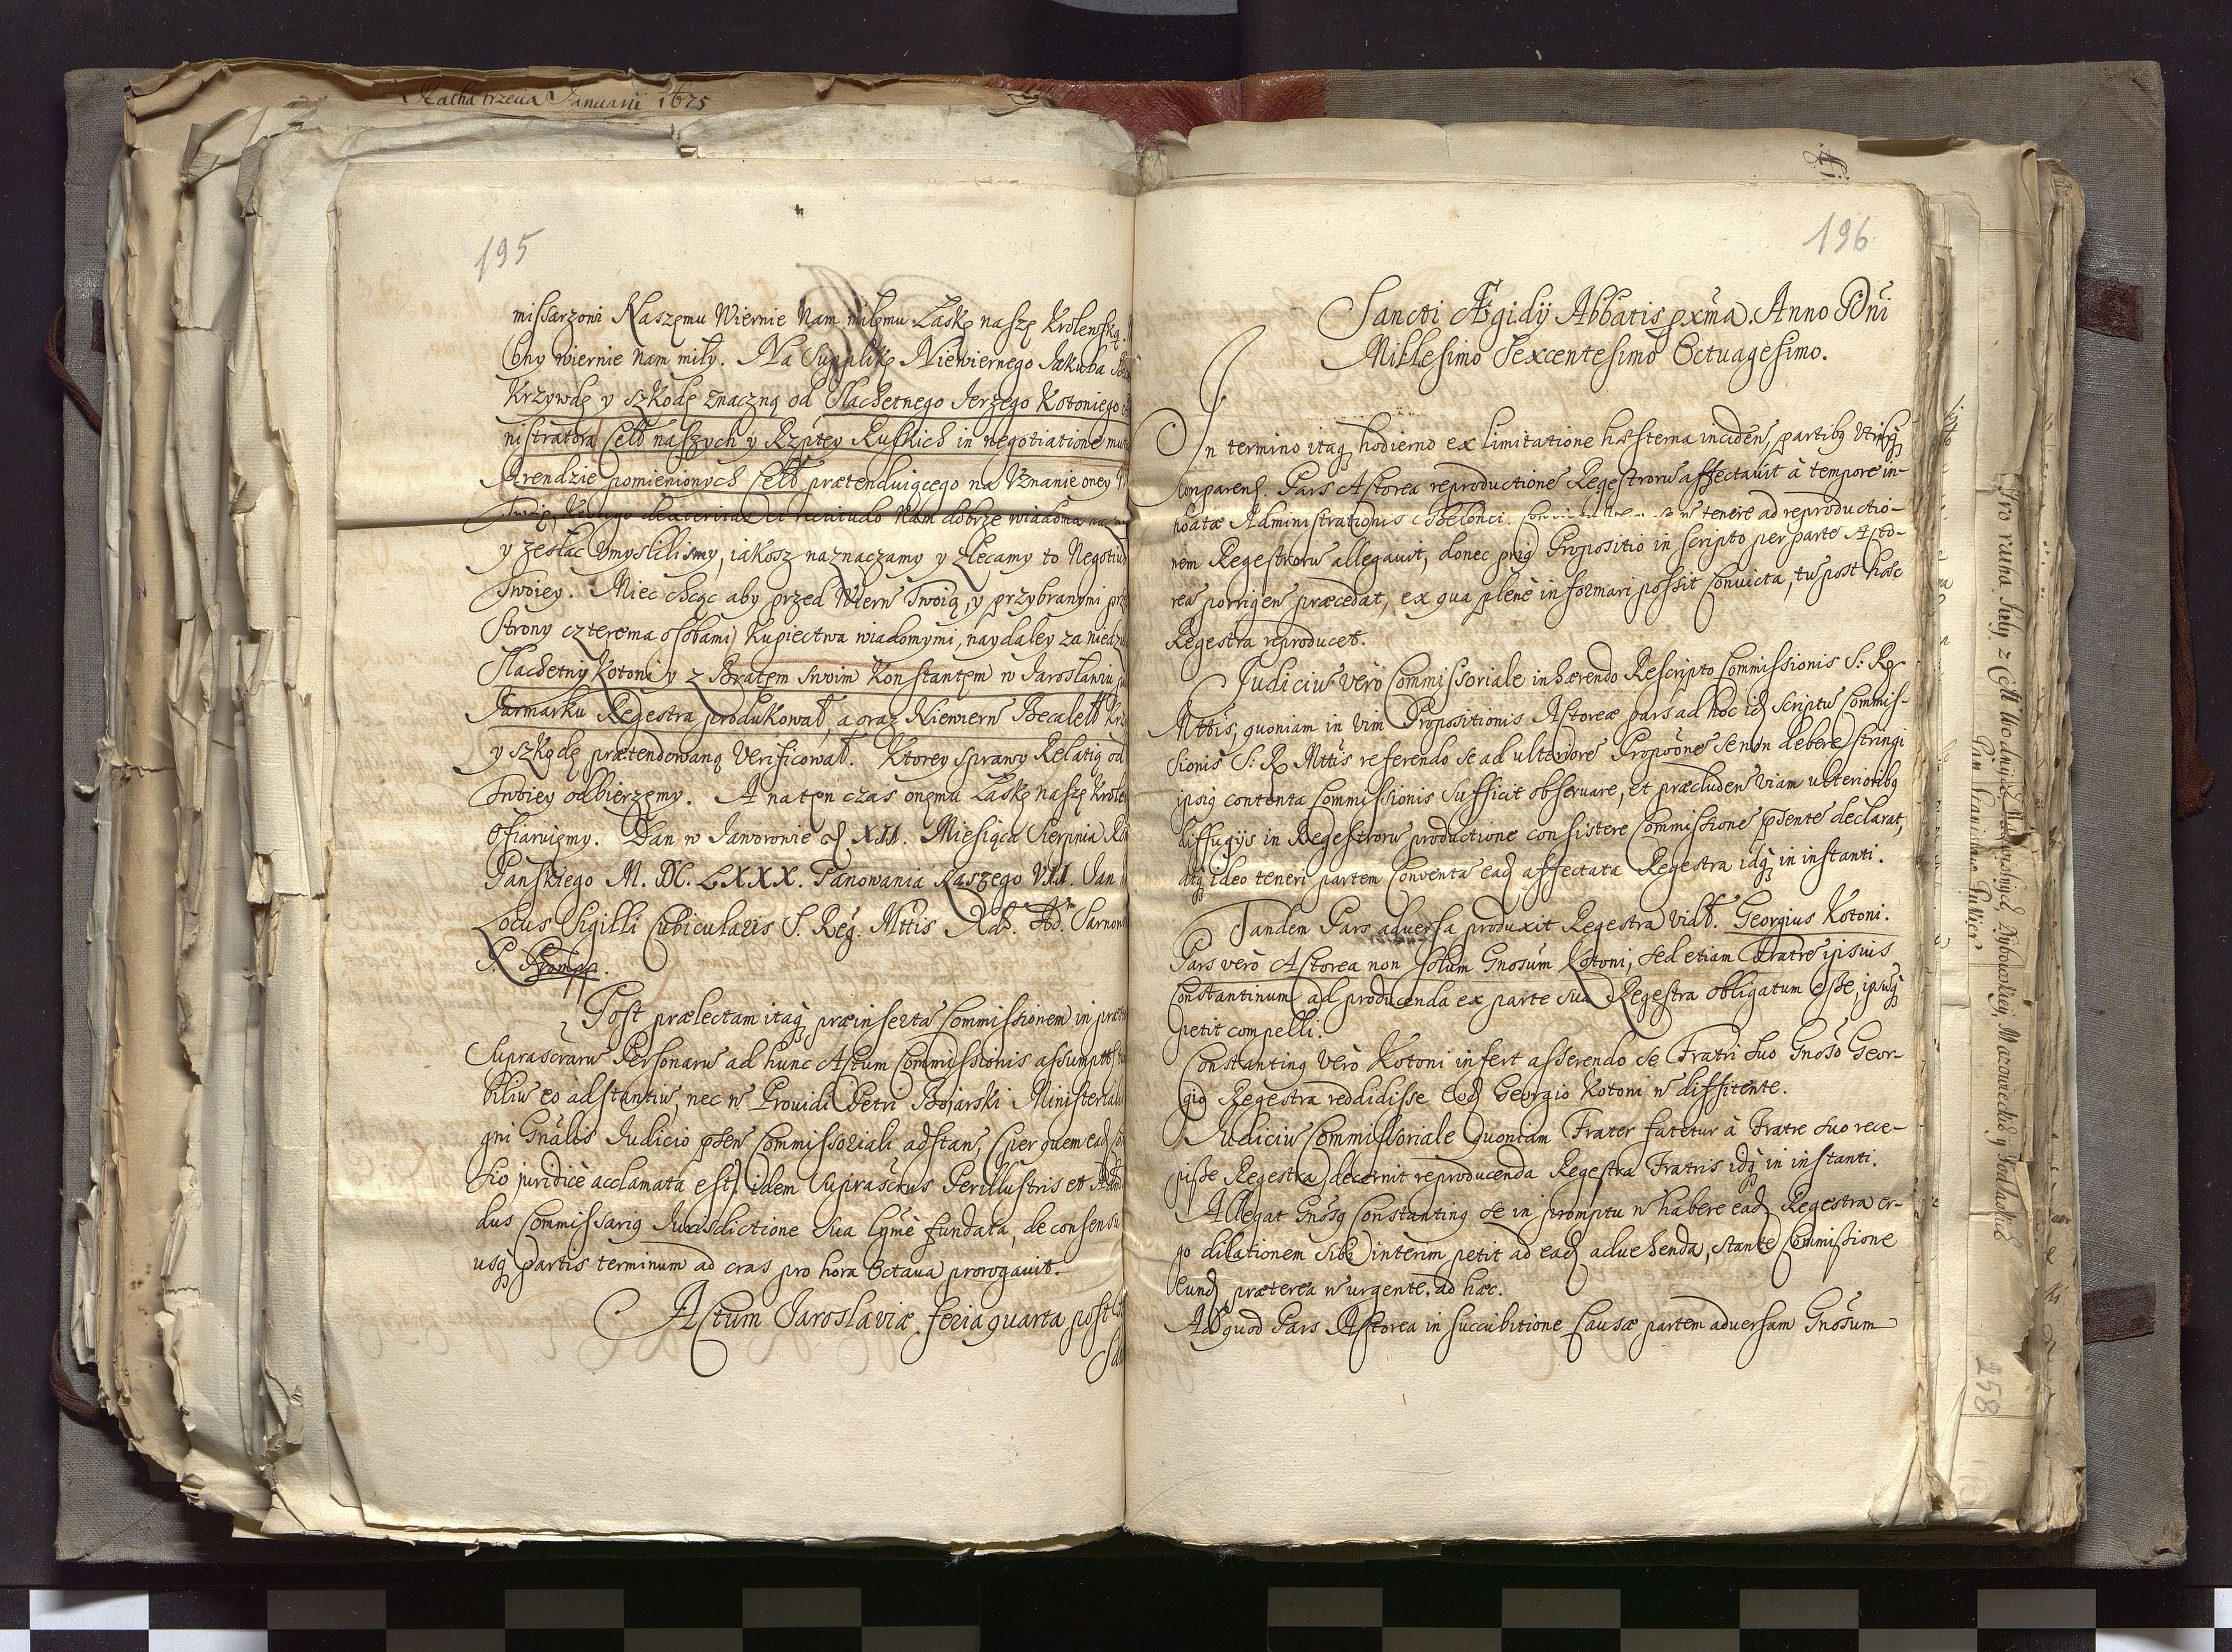 Ratha trzecia Januarii 1675
195
missarzowi Naszemu Wiernie Nam miłemu Łaskę naszę Krolewską.
Wiernie Nam miły. Na Supplikę Niewiernego Jakuba
Krzywdę y szkodę znaczną od Slachetnego Jerzego Kotoniego
nistratora Cełł naszych y Rzptey Ruskich in negotiatione
Arendzie pomienionych Cełł prætenduiącego na Vznanie oney
dexteritas et rectitudo Nam dobrze wiadoma
y zesłać Vmyslilismy, iakosz naznaczamy y zlecamy to Negotium
Twoiey. Miec chcąc aby przed Wiern Twoią, y przybranymi
Strony czterema osobami Kupiectwa wiadomymi, naydaley za
Slachetny Kotoni y z Bratem Swoim Konstantem w Jarosławiu
Jarmarku Regestra produkował, a oraz Niewiern Becaleł
y szkodę prætendowaną Verificował. Ktorey sprawy Relatią od
Twoiey odbierzemy. A naten czas onemu Łaskę naszę
ofiaruiemy. Dan w Jaworowie d. XII. Miesiąca Sierpnia
Pańskiego M. DC. LXXX. Panowania Naszego VII. Jan
Locus Sigilli Cubicularis S. Reg. Mttis
Post prælectam itaq præinserta Commissionem in
Suprascraru Personaru ad hunc Actum Commissionis
biliu eo adstantiu, nec n Prouidi Petri Bojarski Ministerialis
gni Gnalis Judicio psen Commissoriali adstan, (per quem ead
tio juridicè acclamata est) idem Suprascrus Perillustris et
dus Commissarig Jurisdictione Sua lgmè fundata, de consensu
usq partis terminum ad cras pro hora Octaua prorogauit.
Actum Jaroslaviæ feria quarta post
196
Sancti Ægidij Abbatis pxma. Anno Dni
Millesimo Sexcentesimo Octuagesimo.
In termino itaq hodierno ex limitatione hesterna inciden, partibg Vtrisq
comparen. Pars Actorea reproductione Regestroru affectauit à tempore in-
hoatæ Administrationis n tenere ad reproductio-
nem Regestroru allegauit, donec prig Propositio in scripto per parte Acto-
rea porrigen præcedat, ex qua plenè informari possit Convicta, tu post hæc
Regestra reproducet.
Judiciu verò Commissoriale inhærendo Rescripto Commissionis S: R.
Mttis, quoniam in vim Propositionis Actoreæ pars ad hoc id Scriptu Commis-
sionis S: R. Mttis referendo se ad ulteriore Propoone se non debere stringi
ipsig contenta Commissionis Sufficit observare, et præcluden viam ulterioribg
diffugijs in Regestroru productione consistere Commissione psente declarat,
atq ideo teneri partem Conventa ead affectata Regestra idq in instanti.
Tandem Pars adversa produxit Regestra vidlt. Georgius Kotoni.
Pars verò Actorea non solum Gnosum Kotoni, sed etiam Fratre ipsius
Constantinum ad producenda ex parte sua Regestra obligatum esse, ipsuq
petit compelli.
Constanting verò Kotoni infert asserendo se Fratri Suo Gnoso Geor-
gio Regestra reddidisse Eod Georgio Kotoni n diffitente.
Judiciu Commissoriale Quoniam Frater fatetur à Fratre Suo rece-
pisse Regestra decernit reproducenda Regestra Fratris idq in instanti.
Allegat Gnosg Constanting se in promptu n habere ead Regestra er-
go dilationem Sibi interim petit ad ead aduehenda, stante Commissione
Eund præterea n urgente, ad hæc.
Ad quod Pars Actorea in succubitione Causæ partem adversam Gnosum
258